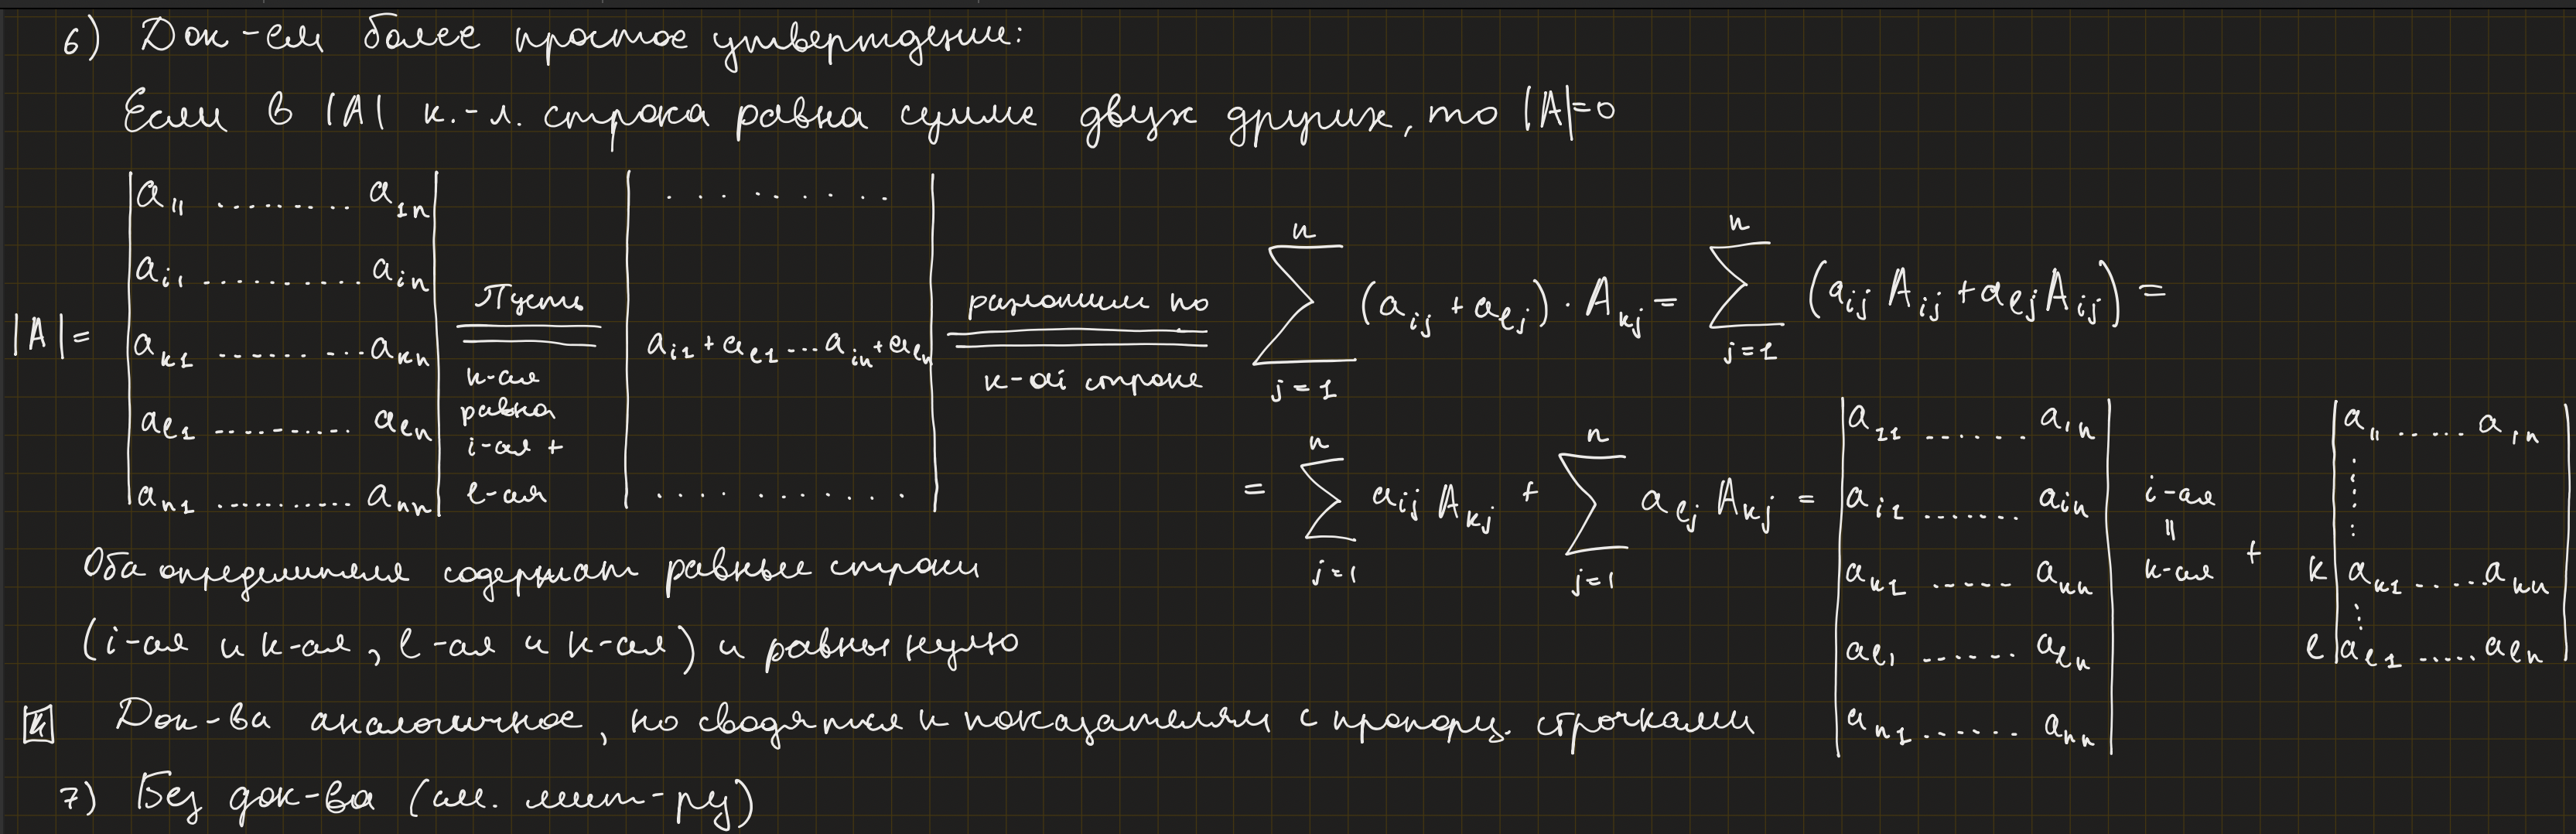 6) Док-ем более простое утверждение:
Если в |A| к.-л. строка равна сумме двух других, то |A|=0
|A| = | a₁₁ ......... a₁ₙ |
| aᵢ₁ .......... aᵢₙ |
| aₖ₁ ...... ... aₖₙ |
| aₗ₁ .......... aₗₙ |
| aₙ₁ .......... aₙₙ |
Пусть
к-ая
равна
i-ая +
l-ая
| . . . . . . . . . |
| aᵢ₁ + aₗ₁ ... aᵢₙ + aₗₙ |
| . . . . . . . . . . . |
разложим по
к-ой строке
∑ⱼ₌₁ⁿ (aᵢⱼ + aₗⱼ) · Aₖⱼ = ∑ⱼ₌₁ⁿ (aᵢⱼ Aᵢⱼ + aₗⱼ Aᵢⱼ) =
= ∑ⱼ₌₁ⁿ aᵢⱼ Aₖⱼ + ∑ⱼ₌₁ⁿ aₗⱼ Aₖⱼ =
| a₁₁ ...... a₁ₙ |
| aᵢ₁ ....... aᵢₙ |
| aₖ₁ ..... aₖₙ |
| aₗ₁ ...... aₗₙ |
| aₙ₁ ...... aₙₙ |
i-ая
=
к-ая
+
| a₁₁ ..... a₁ₙ |
⋮
к | aₖ₁ ..... aₖₙ |
⋮
l | aₗ₁ ..... aₗₙ |
Оба определителя содержат равные строки
(i-ая и к-ая, l-ая и к-ая) и равны нулю
Док-ва аналогичное, но сводятся к показателям с пропорц. строчками
7) Без док-ва (см. лит-ру)